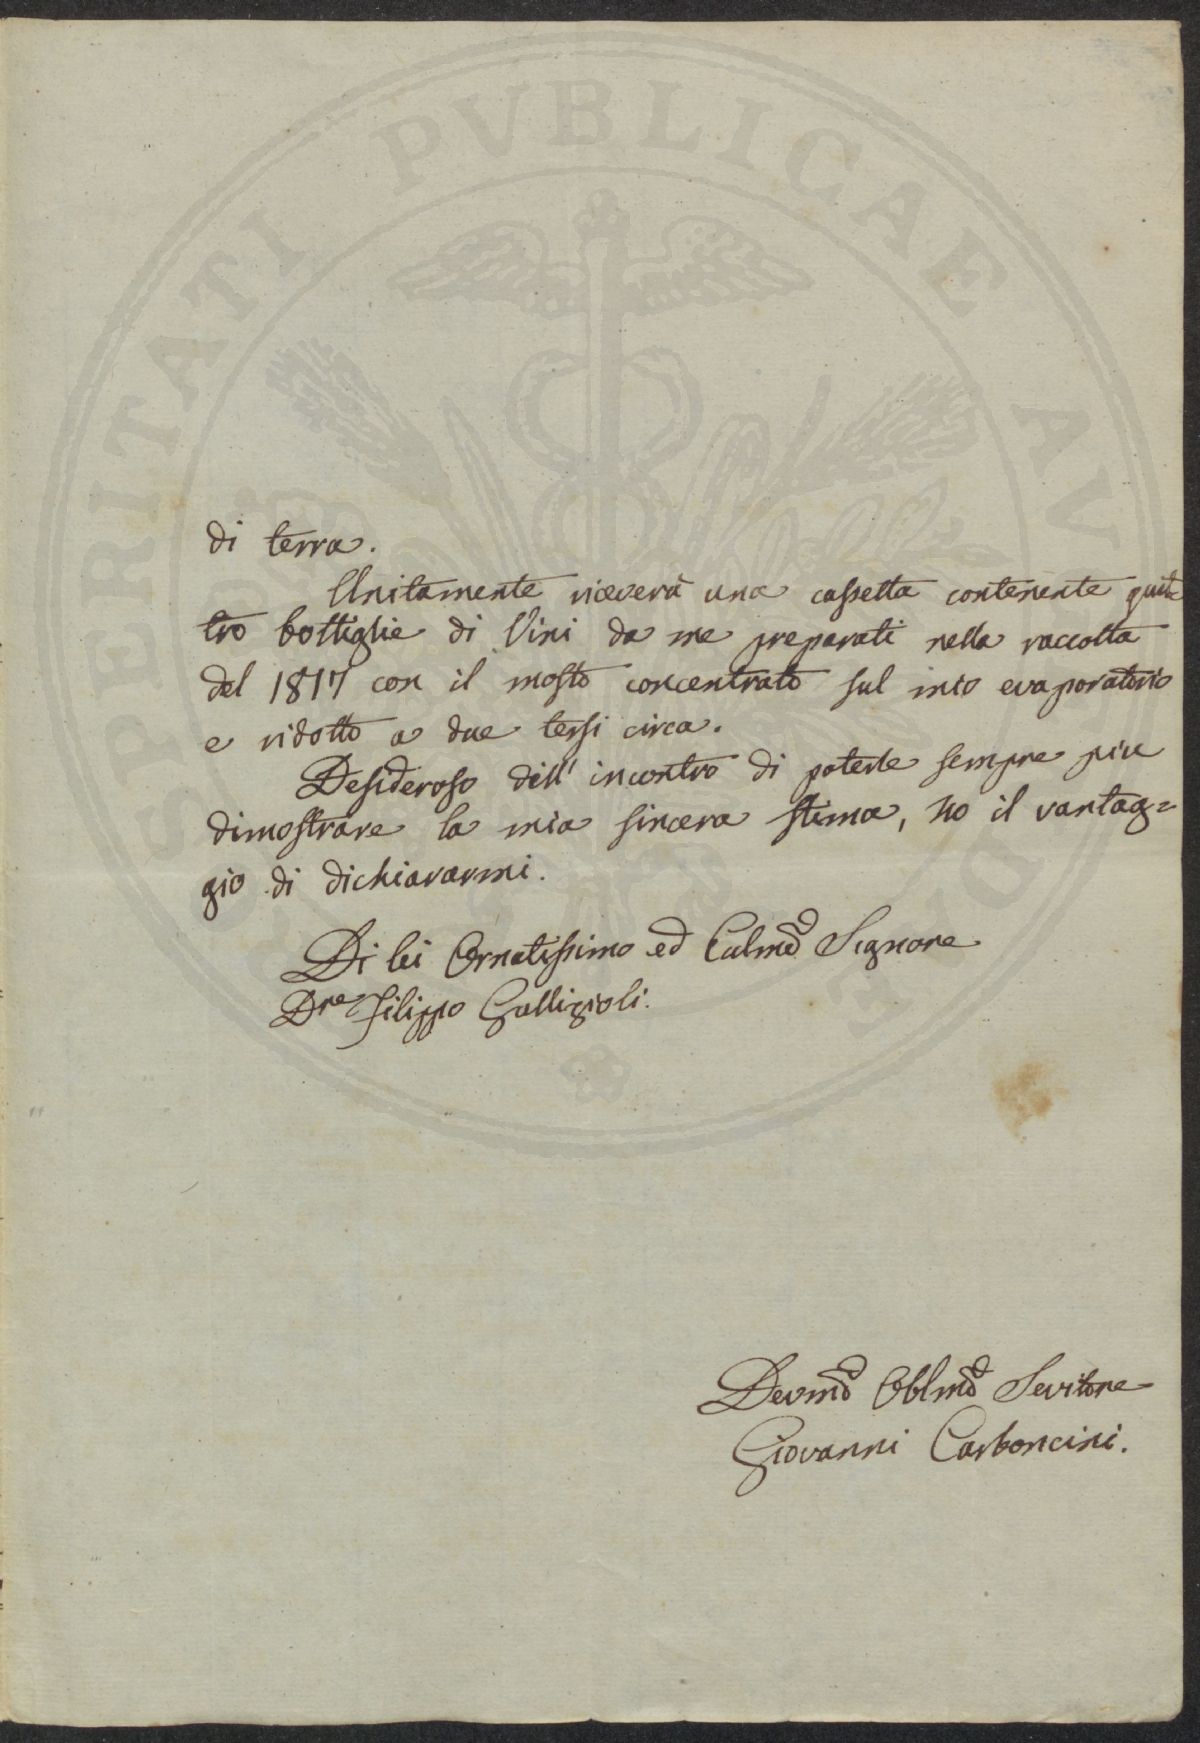 PROSPERITATI PVBLICAE AVGENDAE
di terra.
Unitamente riceverà una cassetta contenente quat=
tro bottiglie di Vini da me preparati nella raccolta
del 1817 con il mosto concentrato sul mio evaporatorio
e ridotto a due tersi circa.
Desideroso dell' incontro di poterle sempre piu
dimostrare la mia sincera stima, ho il vantag=
gio di dichiararmi.
Di lei Ornatissimo ed Culmo Signore
Dre Filippo Gallizioli.
Devmo Obblmo Sevitore
Giovanni Carboncini.